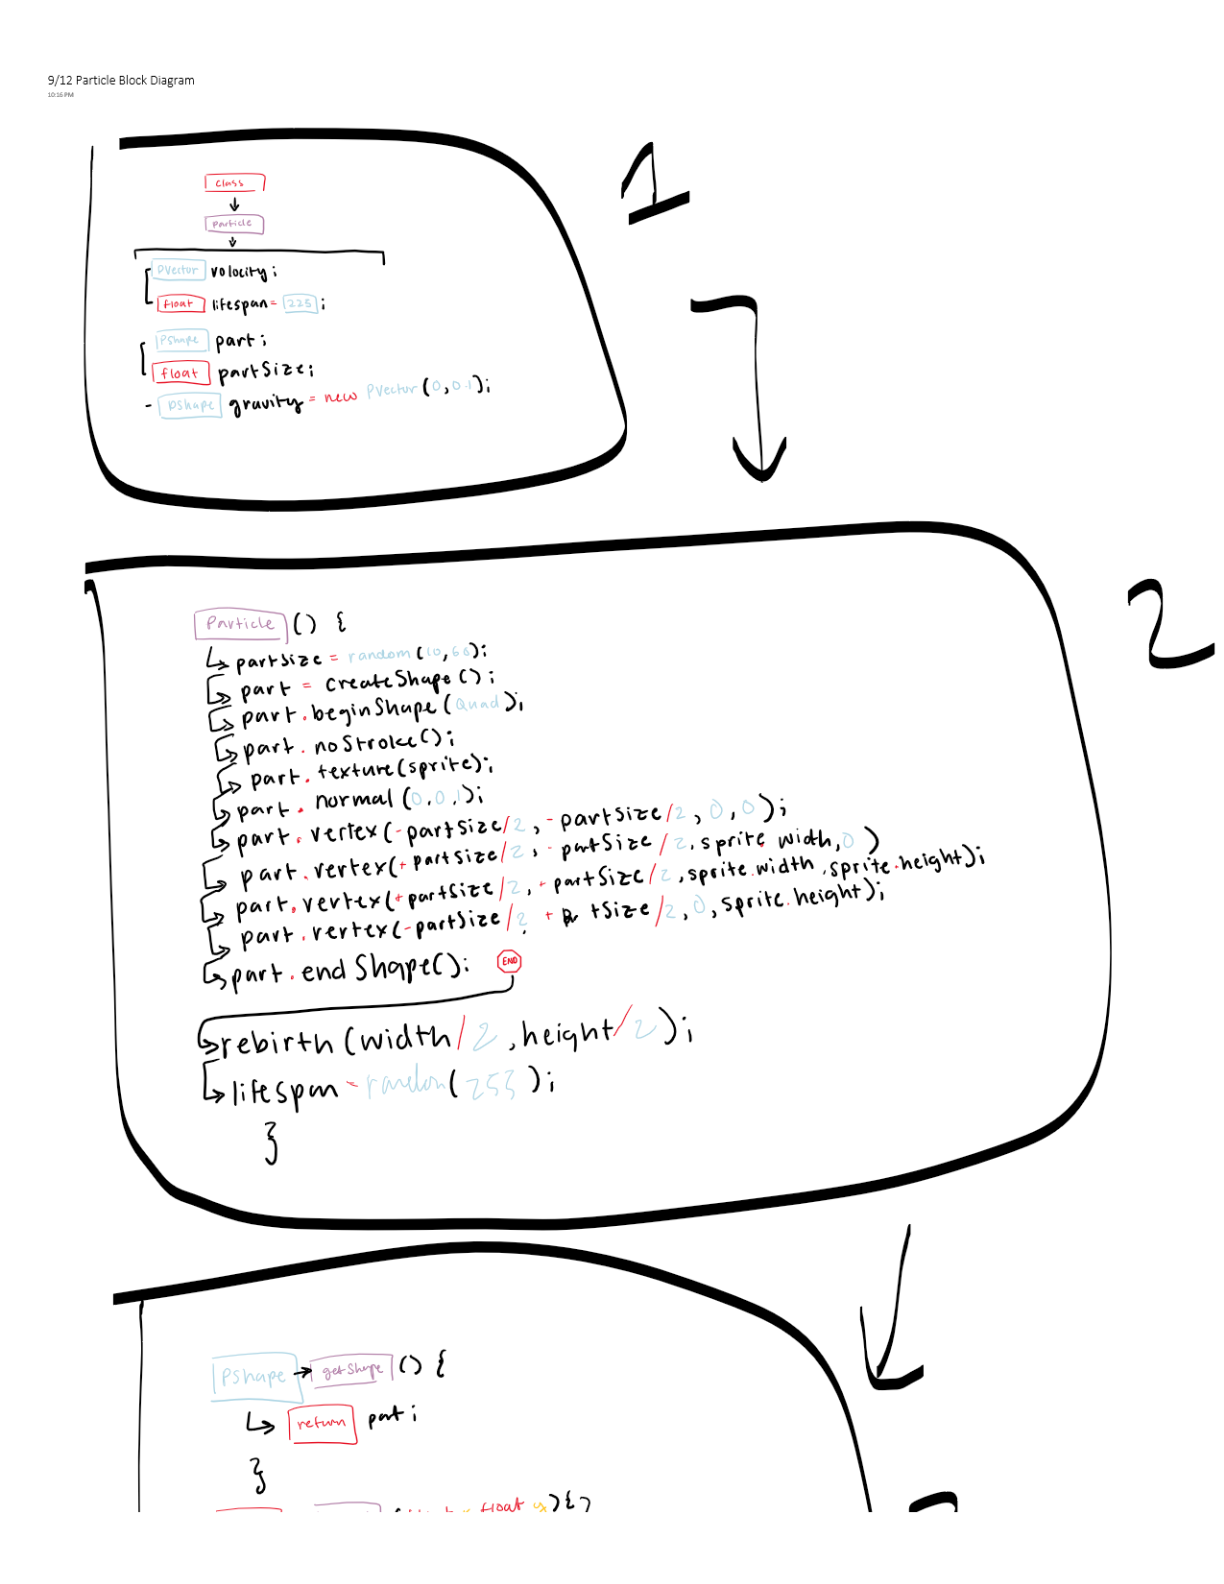 9/12 Particle Block Diagram
10:16 PM
1
class
Particle
PVector velocity;
float lifespan = 225;
PShape part;
float partSize;
- PShape gravity = new PVector (0,0.1);
2
Particle () {
partSize = random (10,60);
part = createShape ();
part.beginShape (Quad);
part.noStroke();
part.texture(sprite);
part.normal (0,0,1);
part.vertex(-partSize/2, -partSize/2, 0, 0);
part.vertex(+partSize/2, -partSize/2, sprite.width, 0)
part.vertex(+partSize/2, +partSize/2, sprite.width, sprite.height);
part.vertex(-partSize/2, + tSize/2, 0, sprite.height);
part.endShape(); END
rebirth (width/2, height/2);
lifespan = random (253);
}
PShape getShape () {
return part;
}
float y) {